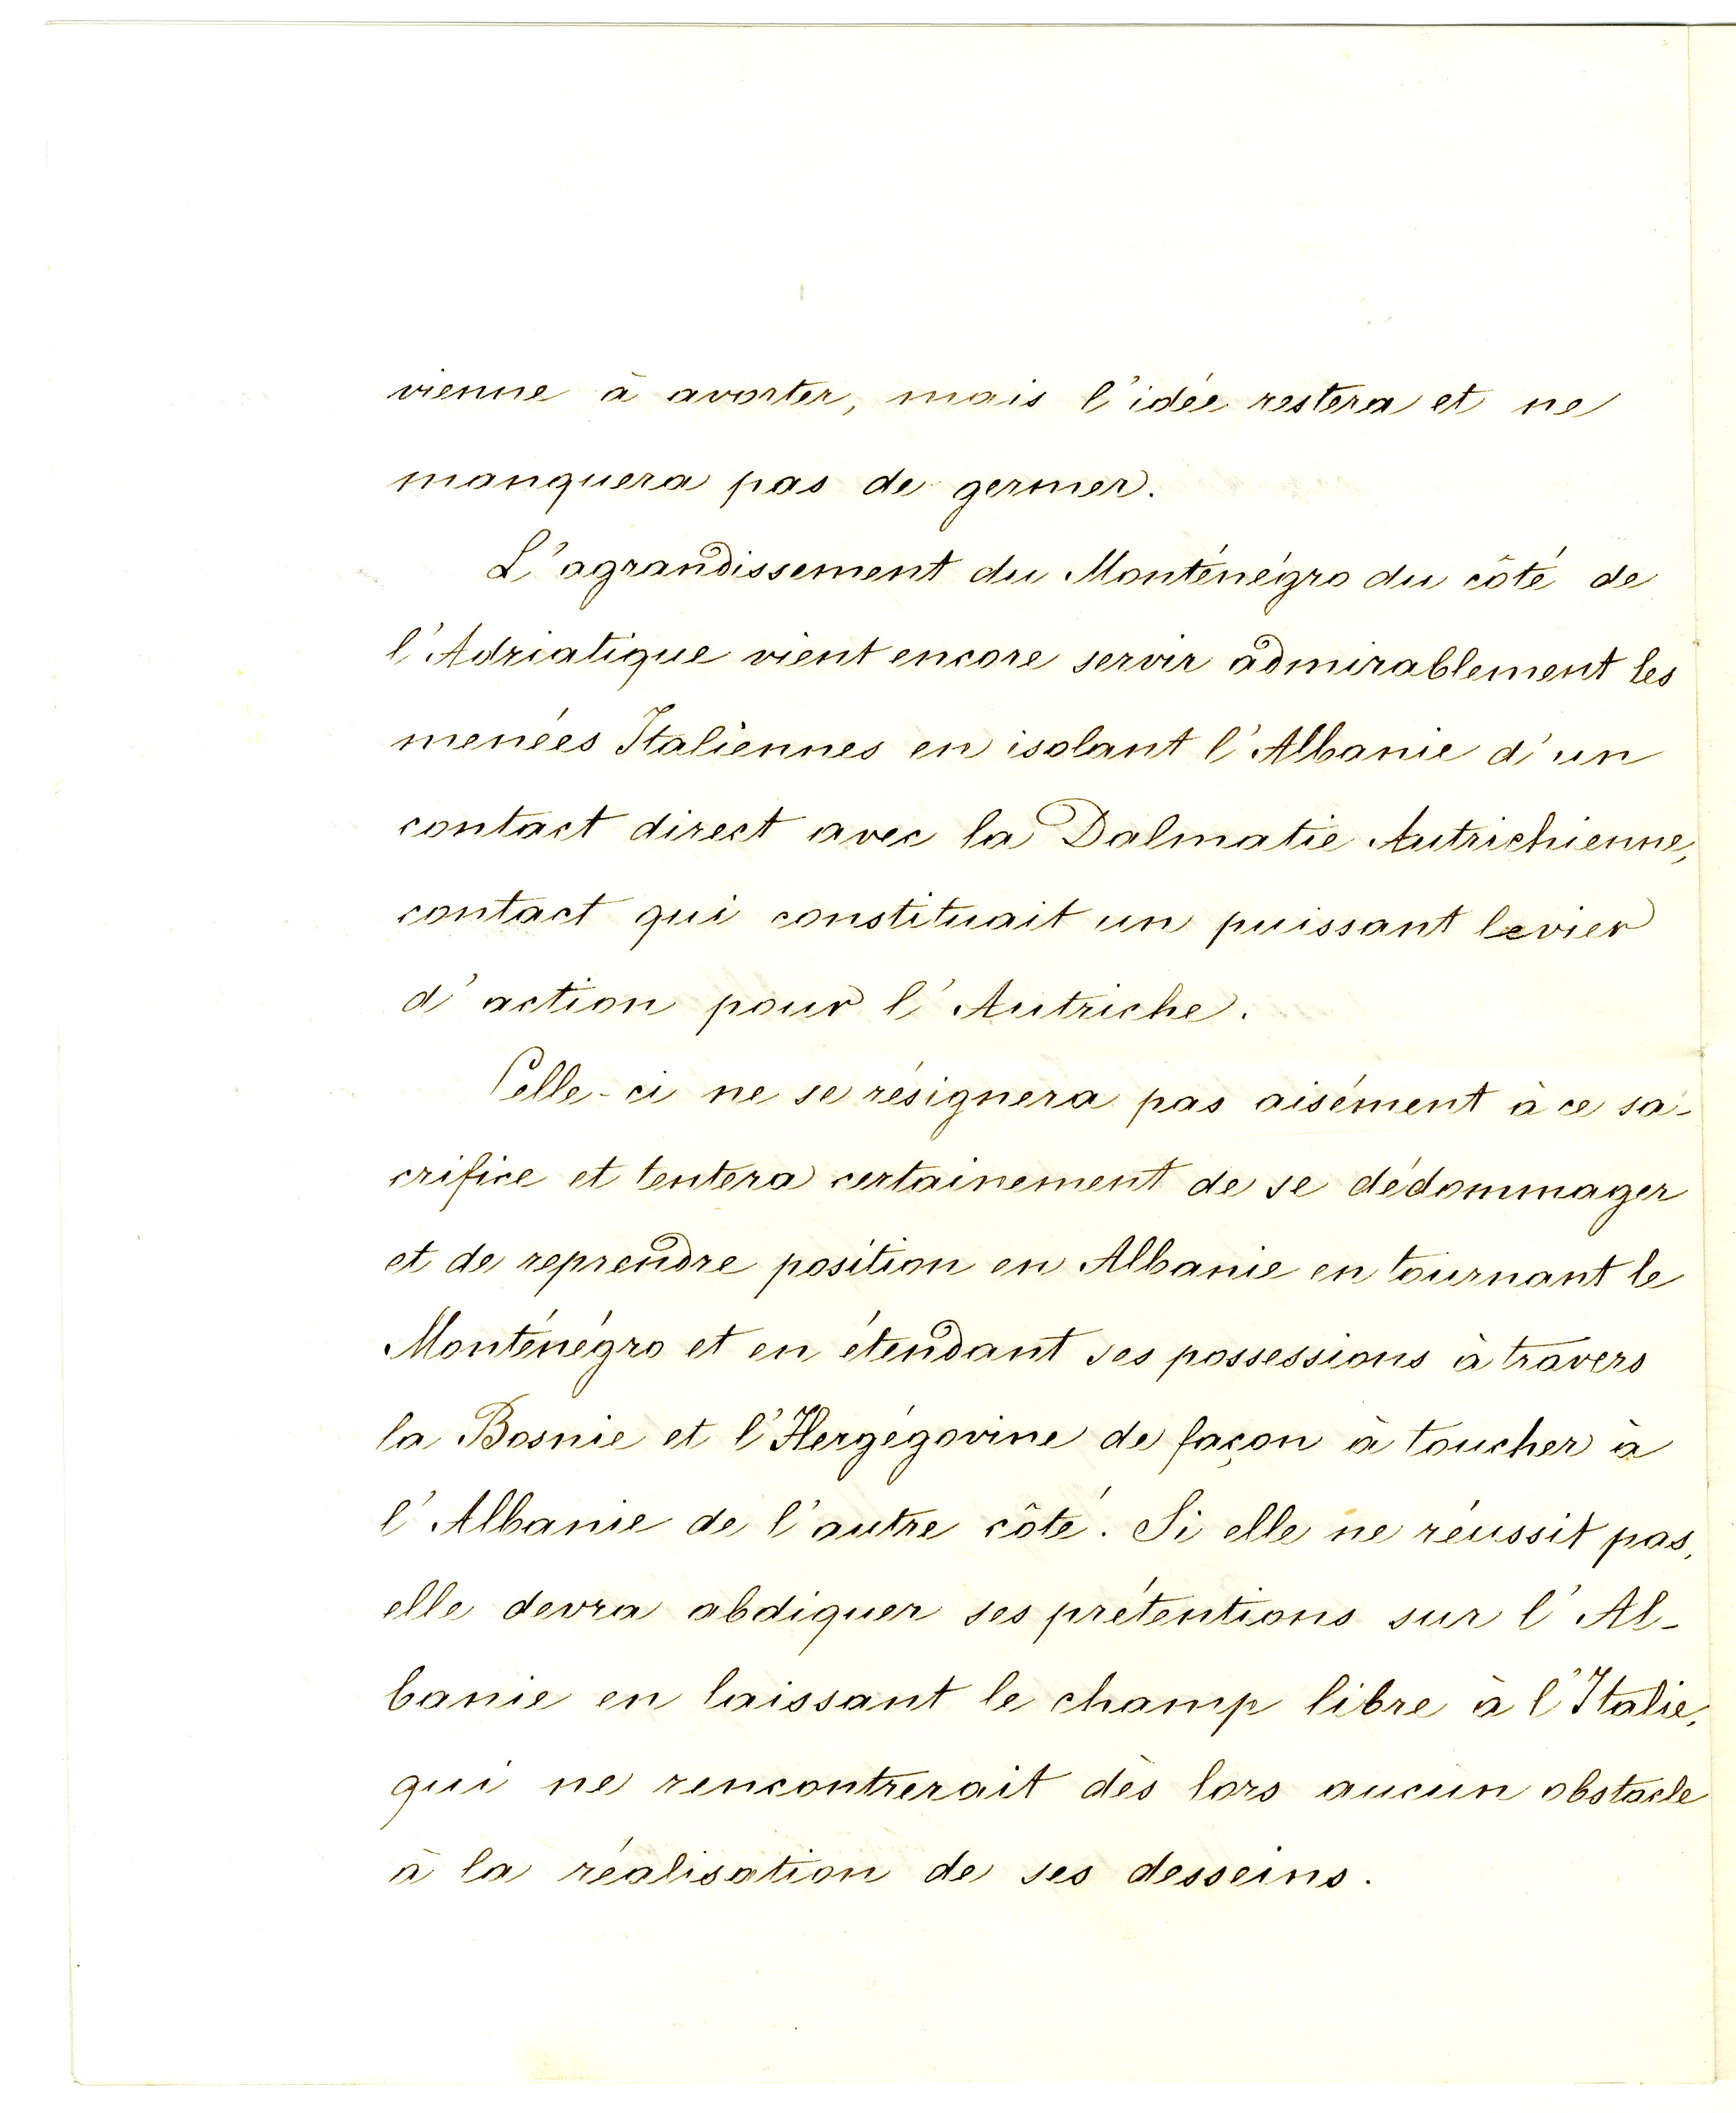 vienne à avorter, mais l'idée restera et ne
manquera pas de germer.
L'agrandissement du Monténégro du côté de
l'Adriatique vient encore servir admirablement les
menées Italiennes en isolant l'Albanie d'un
contact direct avec la Dalmatie Autrichienne,
contact qui constituait un puissant levier
d'action pour l'Autriche.
Celle-ci ne se résignera pas aisément à ce sa-
crifice et tentera certainement de se dédommager
et de reprendre position en Albanie en tournant le
Monténégro et en étendant ses possessions à travers
la Bosnie et l'Herzégovine de façon à toucher à
l'Albanie de l'autre côté. Si elle ne réussit pas,
elle devra abdiquer ses prétentions sur l'Al-
banie en laissant le champ libre à l'Italie,
qui ne rencontrerait dès lors aucun obstacle
à la réalisation de ses desseins.